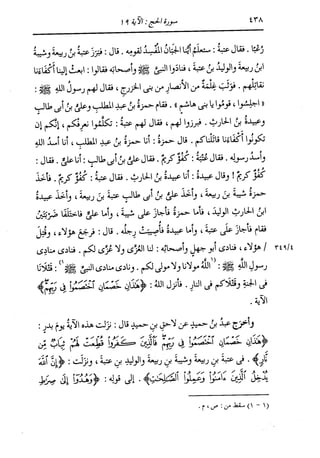 ٤٣٨
سورة الحج: الآية ١٩
رُعْبًا. فقال عتبةُ: ستعلَمُ أيُّنا الجَبَانُ المُفْسِدُ لقومِه. قال: فبرَز عتبةُ بنُ ربيعةَ وشيبةُ
ابنُ ربيعةَ والوليدُ بنُ عتبةَ، فنادَوا النبىَّ ﷺ وأصحابَه فقالوا: ابعثْ إلينا أكْفَاءَنا
نقاتِلْهم. فوثَب غِلْمةٌ من الأنصارِ من بنى الخزرجِ، فقال لهم رسولُ اللهِ ﷺ:
«اجلِسُوا، قوموا يا بنى هاشمٍ». فقام حمزةُ بنُ عبدِ المطلبِ وعلىُّ بنُ أبى طالبٍ
وعبيدةُ بنُ الحارثِ، فبرزوا لهم، فقال عتبةُ: تكلَّموا نعرِفْكم، إنْ
تكونوا أكفاءَنا قاتلناكم. قال حمزةُ: أنا حمزةُ بنُ عبدِ المطلبِ، أنا أسدُ اللهِ
وأسدُ رسولِه. فقال عُتْبَةُ: كُفْؤٌ كريمٌ. فقال علىُّ بنُ أبى طالبٍ: أنا علىٌّ. فقال:
كُفْؤٌ كريمٌ! وقال عبيدةُ: أنا عبيدةُ بنُ الحارثِ. فقال عتبةُ: كُفْؤٌ كريمٌ. فأخَذ
حمزةُ شيبةَ بنَ ربيعةَ، وأخَذ علىُّ بنُ أبى طالبٍ عتبةَ بنَ ربيعةَ، وأخَذ عبيدةُ
ابنُ الحارثِ الوليدَ، فأما حمزةُ فأجاز على شيبةَ، وأما علىٌّ فاختلَفا ضربتَيْنِ
فقام فأجاز على عتبةَ، وأما عبيدةُ فأُصيبتْ رِجلُه. قال: فرجَع هؤلاء، وقُتِل
٣٤٩/٤ / هؤلاء، فنادى أبو جهلٍ وأصحابُه: لنا العُزَّى ولا عُزَّى لكم. فنادى منادى
رسولِ اللهِ ﷺ: (١اللهُ مولانا ولا مولى لكم. ونادى منادى النبىِّ ﷺ١): قَتْلانا
فى الجنةِ وقَتْلاكم فى النارِ. فأنزل اللهُ: ﴿هَٰذَانِ خَصْمَانِ اخْتَصَمُوا فِى رَبِّهِمْ﴾
الآية.
وأخرَج عبدُ بنُ حميدٍ عن لاحقِ بنِ حميدٍ قال: نزَلت هذه الآيةُ يومَ بدرٍ:
﴿هَٰذَانِ خَصْمَانِ اخْتَصَمُوا فِى رَبِّهِمْ فَالَّذِينَ كَفَرُوا قُطِّعَتْ لَهُمْ ثِيَابٌ مِّن
نَّارٍ﴾. فى عتبةَ بنِ ربيعةَ وشيبةَ بنِ ربيعةَ والوليدِ بنِ عتبةَ، ونزَلت: ﴿إِنَّ اللَّهَ
يُدْخِلُ الَّذِينَ آمَنُوا وَعَمِلُوا الصَّالِحَاتِ﴾. إلى قوله: ﴿وَهُدُوا إِلَىٰ صِرَاطِ
(١ - ١) سقط من: ص، م.